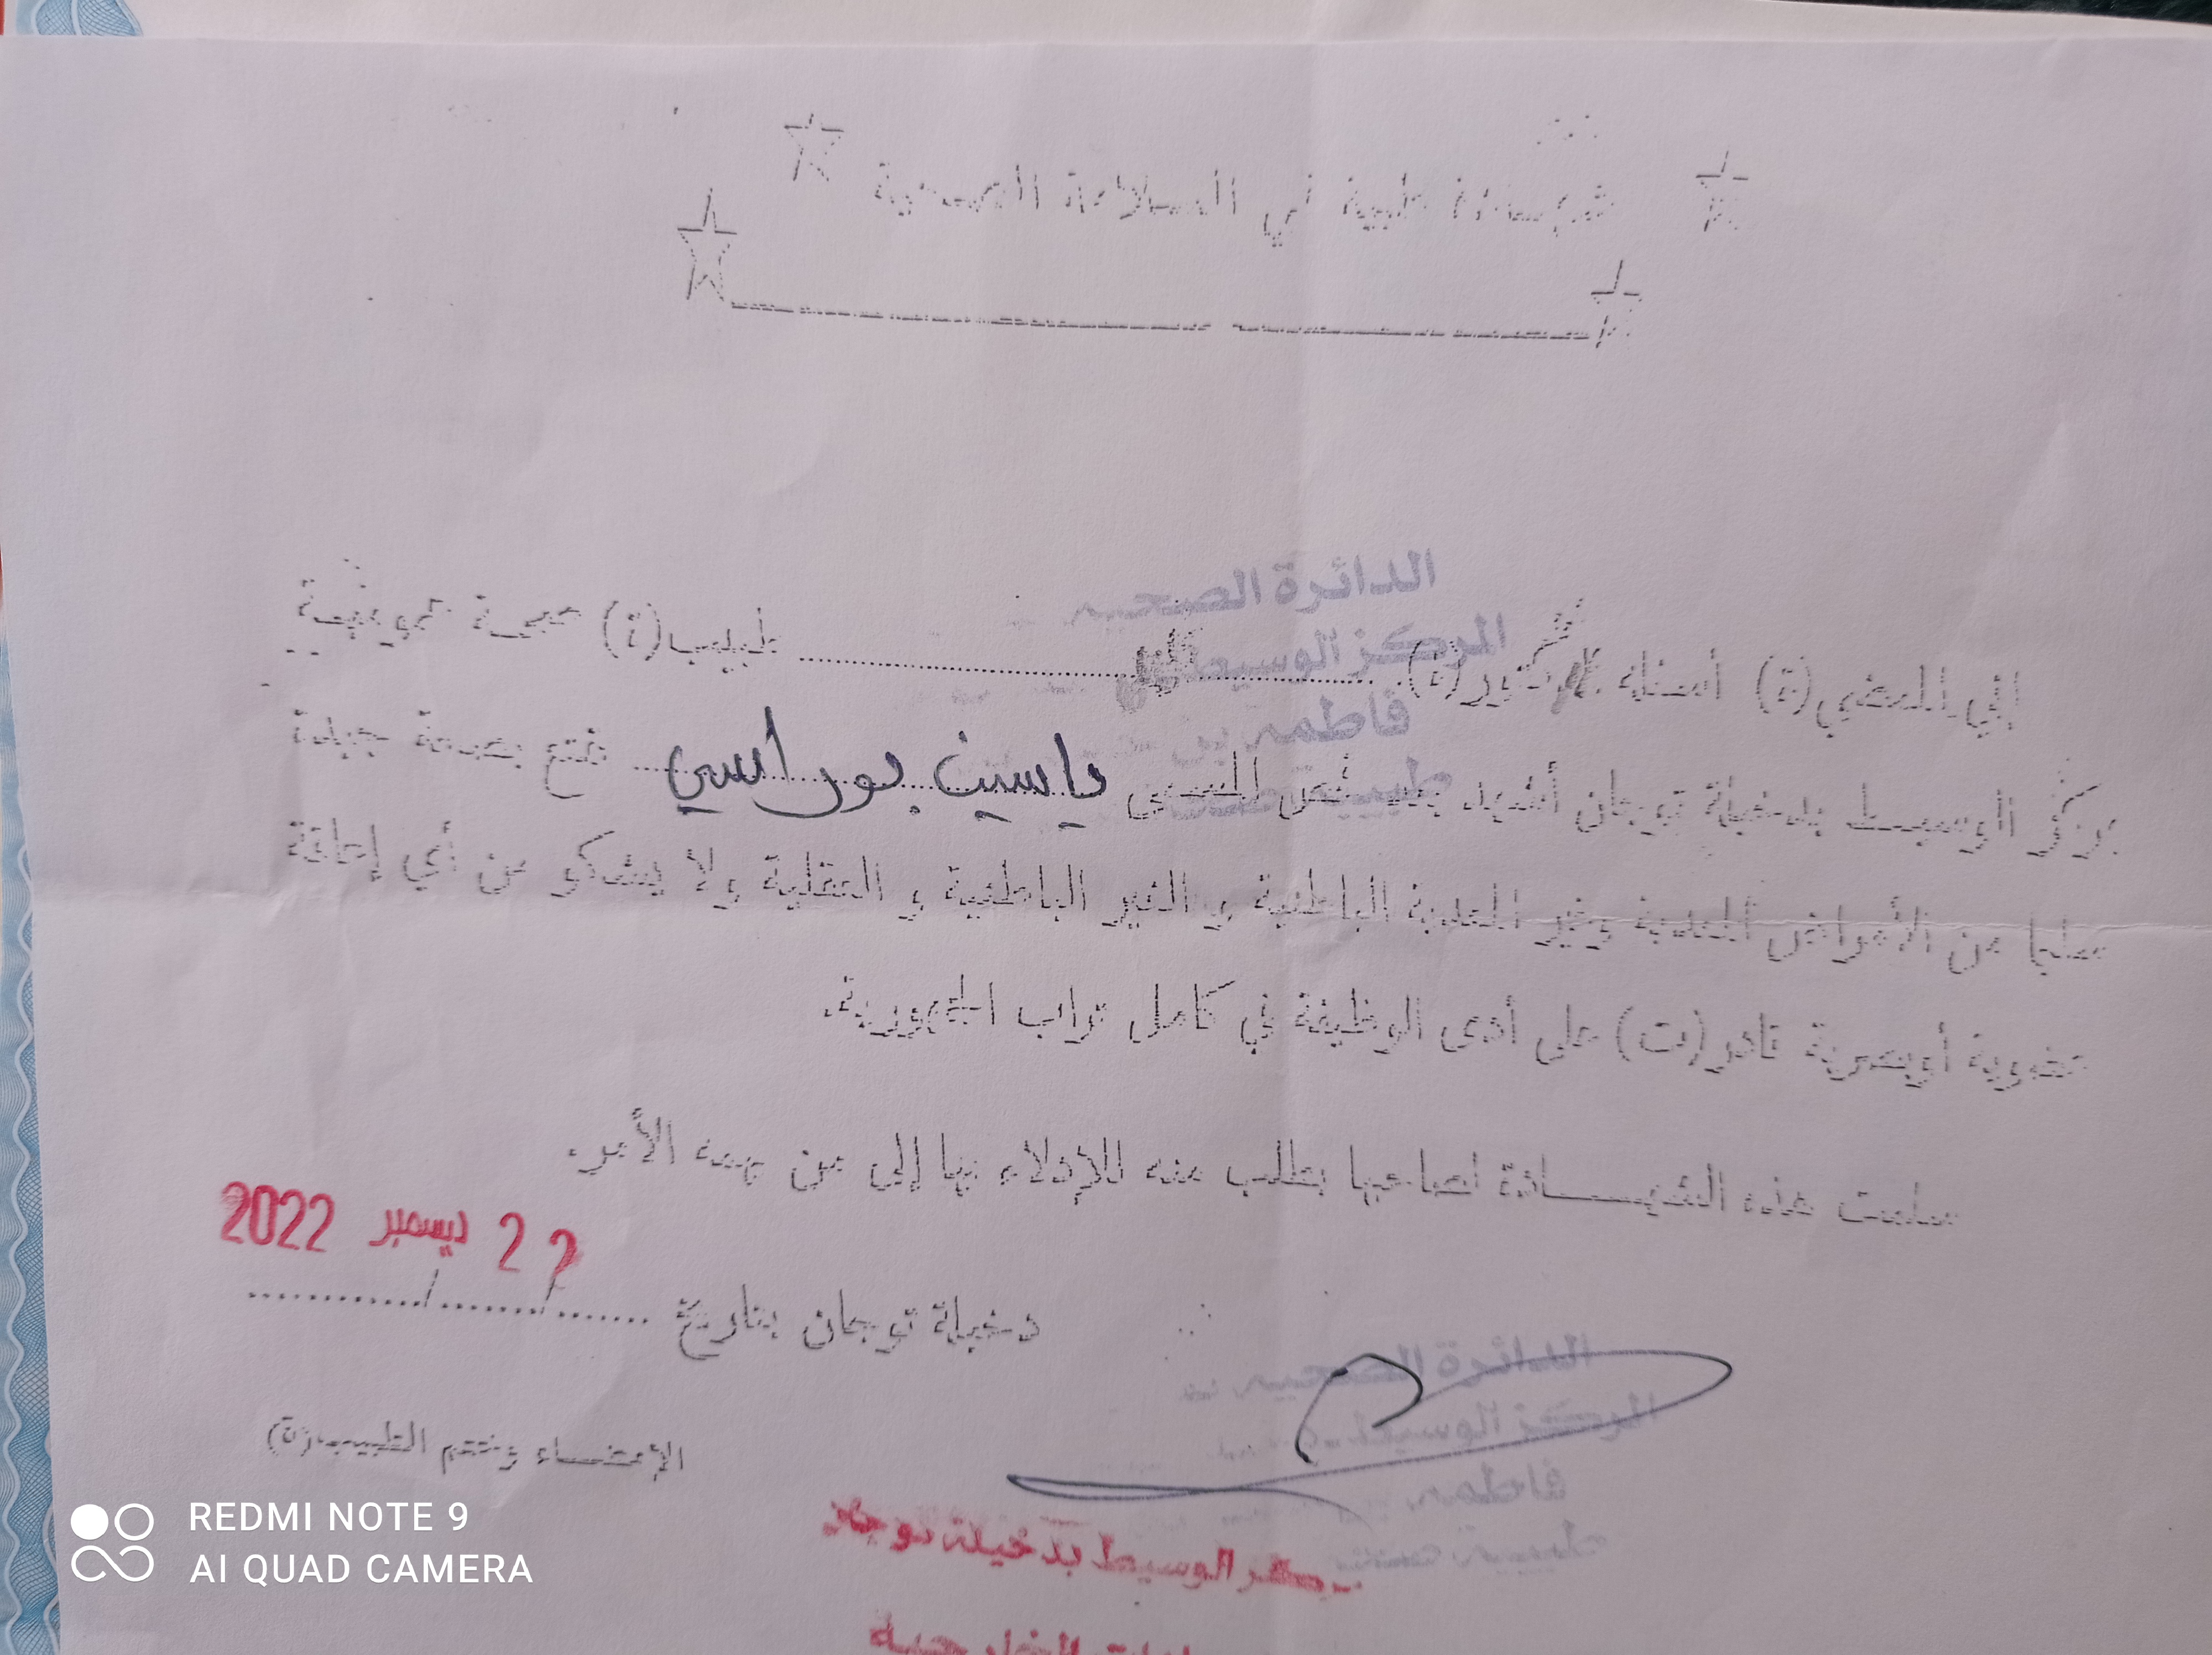 شهادة طبية في السلامة الصحية
الدائرة الصحية
المركز الوسيط
فاطمة بن
إني الممضي(ة) أسفله الدكتور(ة) ........ طبيب(ة) صحة عمومية
بمركز الوسيط بدخيلة توجان أشهد بعد فحص المسمى ياسين بوراسي تمتع بصحة جيدة
سليما من الأمراض المعدية وغير المعدية الباطنية و الغير الباطنية و العقلية ولا يشكو من أي إعاقة
عضوية أوبصرية قادر(ت) على أدى الوظيفة في كامل تراب الجمهورية.
سلمت هذه الشهـــادة لصاحبها بطلب منه للإدلاء بها إلى من يهمه الأمر.
22 ديسمبر 2022
دخيلة توجان بتاريخ ......./......./............
الدائرة الصحية
الإمضـــاء وختم الطبيب(ة)
المركز الوسيط
مركز الوسيط بدخيلة توجان
REDMI NOTE 9
AI QUAD CAMERA